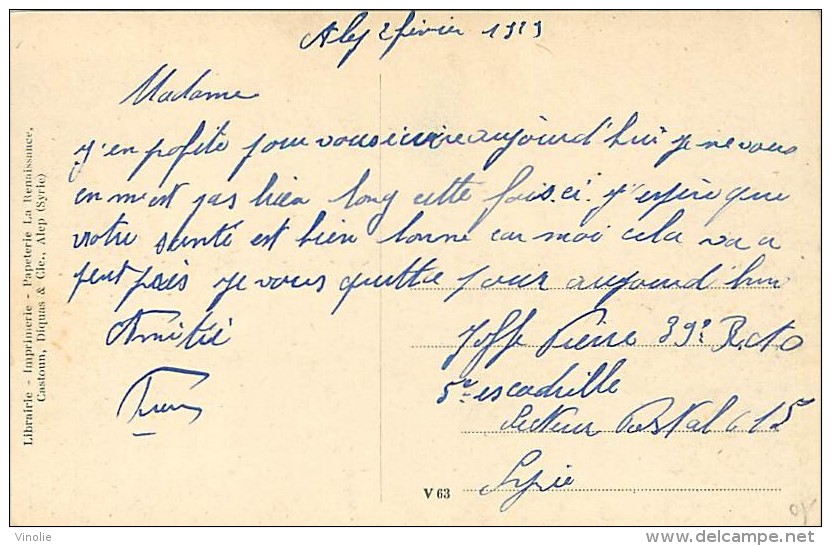 Alep 2 fevier 1929
Madame
j'en profite pour vous ecrire aujourd'hui je ne vous
en met pas bien long cette fois.ci. j'espère que
votre santé est bien bonne car moi cela va a
peut prais je vous quitte pour aujourd'hui
Amitié
Joffe Pierre 39e R.A.O
5e escadrille
Secteur Postal 615
Syrie
V 63
Librairie - Imprimerie - Papeterie La Renaissance,
Castoun, Diquas & Cie., Alep (Syrie)
Vinolie
www.delcampe.net